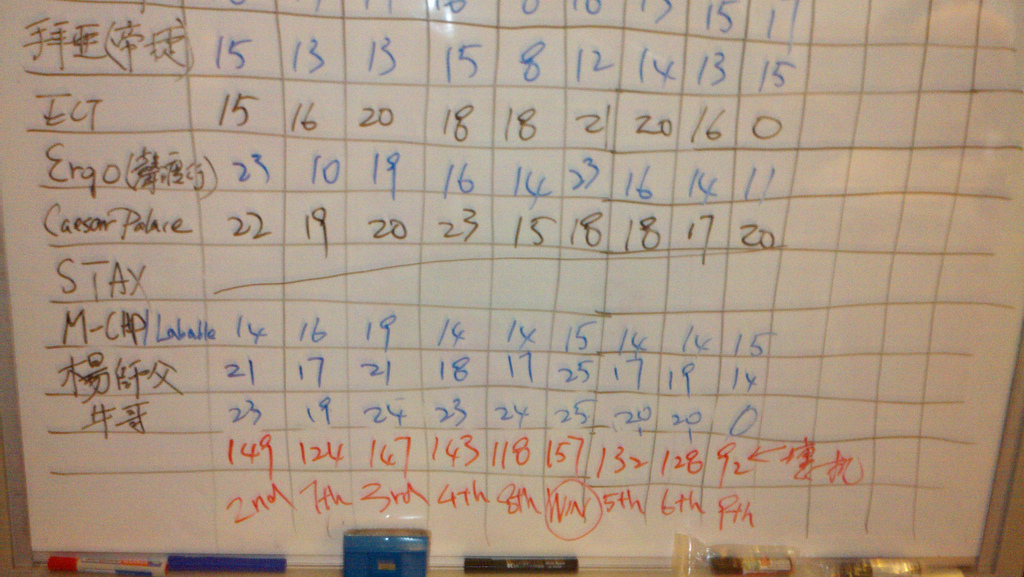 15 17
拜亞 15 13 13 15 8 12 14 13 15
ECT 15 16 20 18 18 21 20 16 0
Ergo 23 10 19 16 14 23 16 14 11
Caesar Palace 22 19 20 23 15 18 18 17 20
STAX
M-CAP/Labable 14 16 19 14 14 15 14 14 15
楊師父 21 17 21 18 17 25 17 19 14
牛哥 23 19 24 23 24 25 20 20 0
149 124 147 143 118 157 132 128 92 ← 壞机
2nd 7th 3rd 4th 8th Win 5th 6th 9th